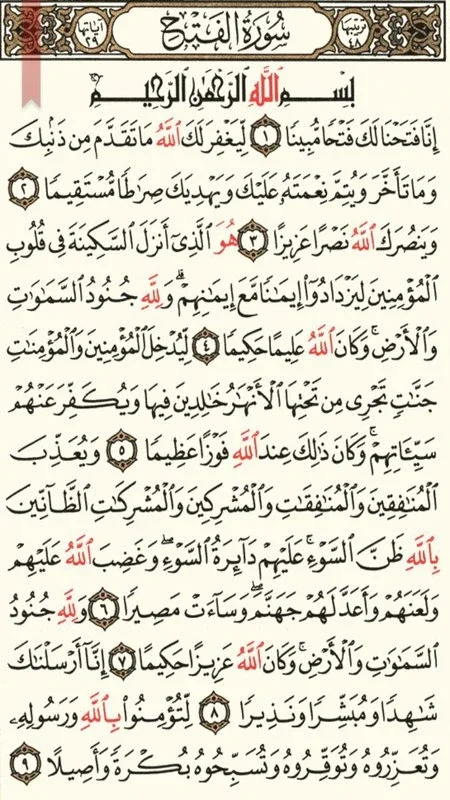 ترتيبها ٤٨
سُورَةُ الْفَتْحِ
آياتها ٢٩
بِسْمِ ٱللَّهِ ٱلرَّحْمَٰنِ ٱلرَّحِيمِ
إِنَّا فَتَحْنَا لَكَ فَتْحًا مُّبِينًا ١ لِّيَغْفِرَ لَكَ ٱللَّهُ مَا تَقَدَّمَ مِن ذَنۢبِكَ
وَمَا تَأَخَّرَ وَيُتِمَّ نِعْمَتَهُۥ عَلَيْكَ وَيَهْدِيَكَ صِرَٰطًا مُّسْتَقِيمًا ٢
وَيَنصُرَكَ ٱللَّهُ نَصْرًا عَزِيزًا ٣ هُوَ ٱلَّذِىٓ أَنزَلَ ٱلسَّكِينَةَ فِى قُلُوبِ
ٱلْمُؤْمِنِينَ لِيَزْدَادُوٓا۟ إِيمَٰنًا مَّعَ إِيمَٰنِهِمْ ۗ وَلِلَّهِ جُنُودُ ٱلسَّمَٰوَٰتِ
وَٱلْأَرْضِ ۚ وَكَانَ ٱللَّهُ عَلِيمًا حَكِيمًا ٤ لِّيُدْخِلَ ٱلْمُؤْمِنِينَ وَٱلْمُؤْمِنَٰتِ
جَنَّٰتٍ تَجْرِى مِن تَحْتِهَا ٱلْأَنْهَٰرُ خَٰلِدِينَ فِيهَا وَيُكَفِّرَ عَنْهُمْ
سَيِّـَٔاتِهِمْ ۚ وَكَانَ ذَٰلِكَ عِندَ ٱللَّهِ فَوْزًا عَظِيمًا ٥ وَيُعَذِّبَ
ٱلْمُنَٰفِقِينَ وَٱلْمُنَٰفِقَٰتِ وَٱلْمُشْرِكِينَ وَٱلْمُشْرِكَٰتِ ٱلظَّآنِّينَ
بِٱللَّهِ ظَنَّ ٱلسَّوْءِ ۚ عَلَيْهِمْ دَآئِرَةُ ٱلسَّوْءِ ۖ وَغَضِبَ ٱللَّهُ عَلَيْهِمْ
وَلَعَنَهُمْ وَأَعَدَّ لَهُمْ جَهَنَّمَ ۖ وَسَآءَتْ مَصِيرًا ٦ وَلِلَّهِ جُنُودُ
ٱلسَّمَٰوَٰتِ وَٱلْأَرْضِ ۚ وَكَانَ ٱللَّهُ عَزِيزًا حَكِيمًا ٧ إِنَّآ أَرْسَلْنَٰكَ
شَٰهِدًا وَمُبَشِّرًا وَنَذِيرًا ٨ لِّتُؤْمِنُوا۟ بِٱللَّهِ وَرَسُولِهِۦ
وَتُعَزِّرُوهُ وَتُوَقِّرُوهُ وَتُسَبِّحُوهُ بُكْرَةً وَأَصِيلًا ٩